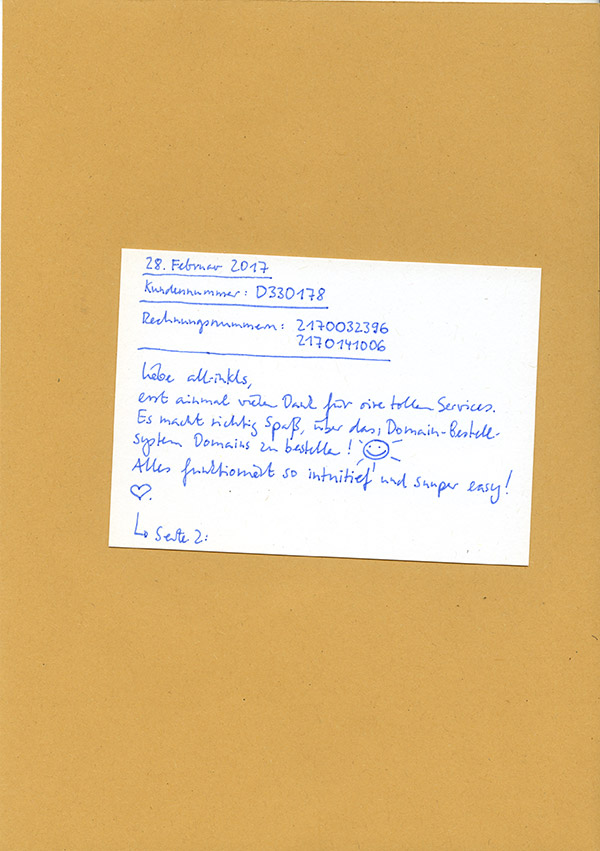 28. Februar 2017
Kundennummer: D330178
Rechnungsnummern: 2170032396
2170141006
liebe all-inkls,
erst ainmal vielen Dank für eire tollen Services.
Es macht richtig Spaß, über das Domain-Bestell-
system Domains zu bestellen!
Alles funktioniert so intuitief und suuper easy!
♡.
↳ Seite 2: